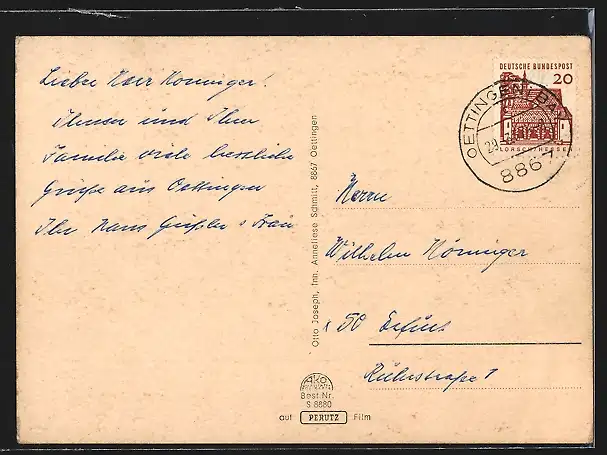 Lieber Herr Könninger!
Ihnen und Ihrer
Familie viele herzliche
Grüße aus Oettingen
Ihr Hans Größler u Frau
DEUTSCHE BUNDESPOST
20
LORSCH/HESSEN
OETTINGEN, BAY
8867
Herrn
Wilhelm Könninger
x 50 Erfurt
Rubensstraße 1
Otto Joseph, Inh. Anneliese Schmitt, 8867 Oettingen
Best.Nr.
S 8880
auf PERUTZ Film